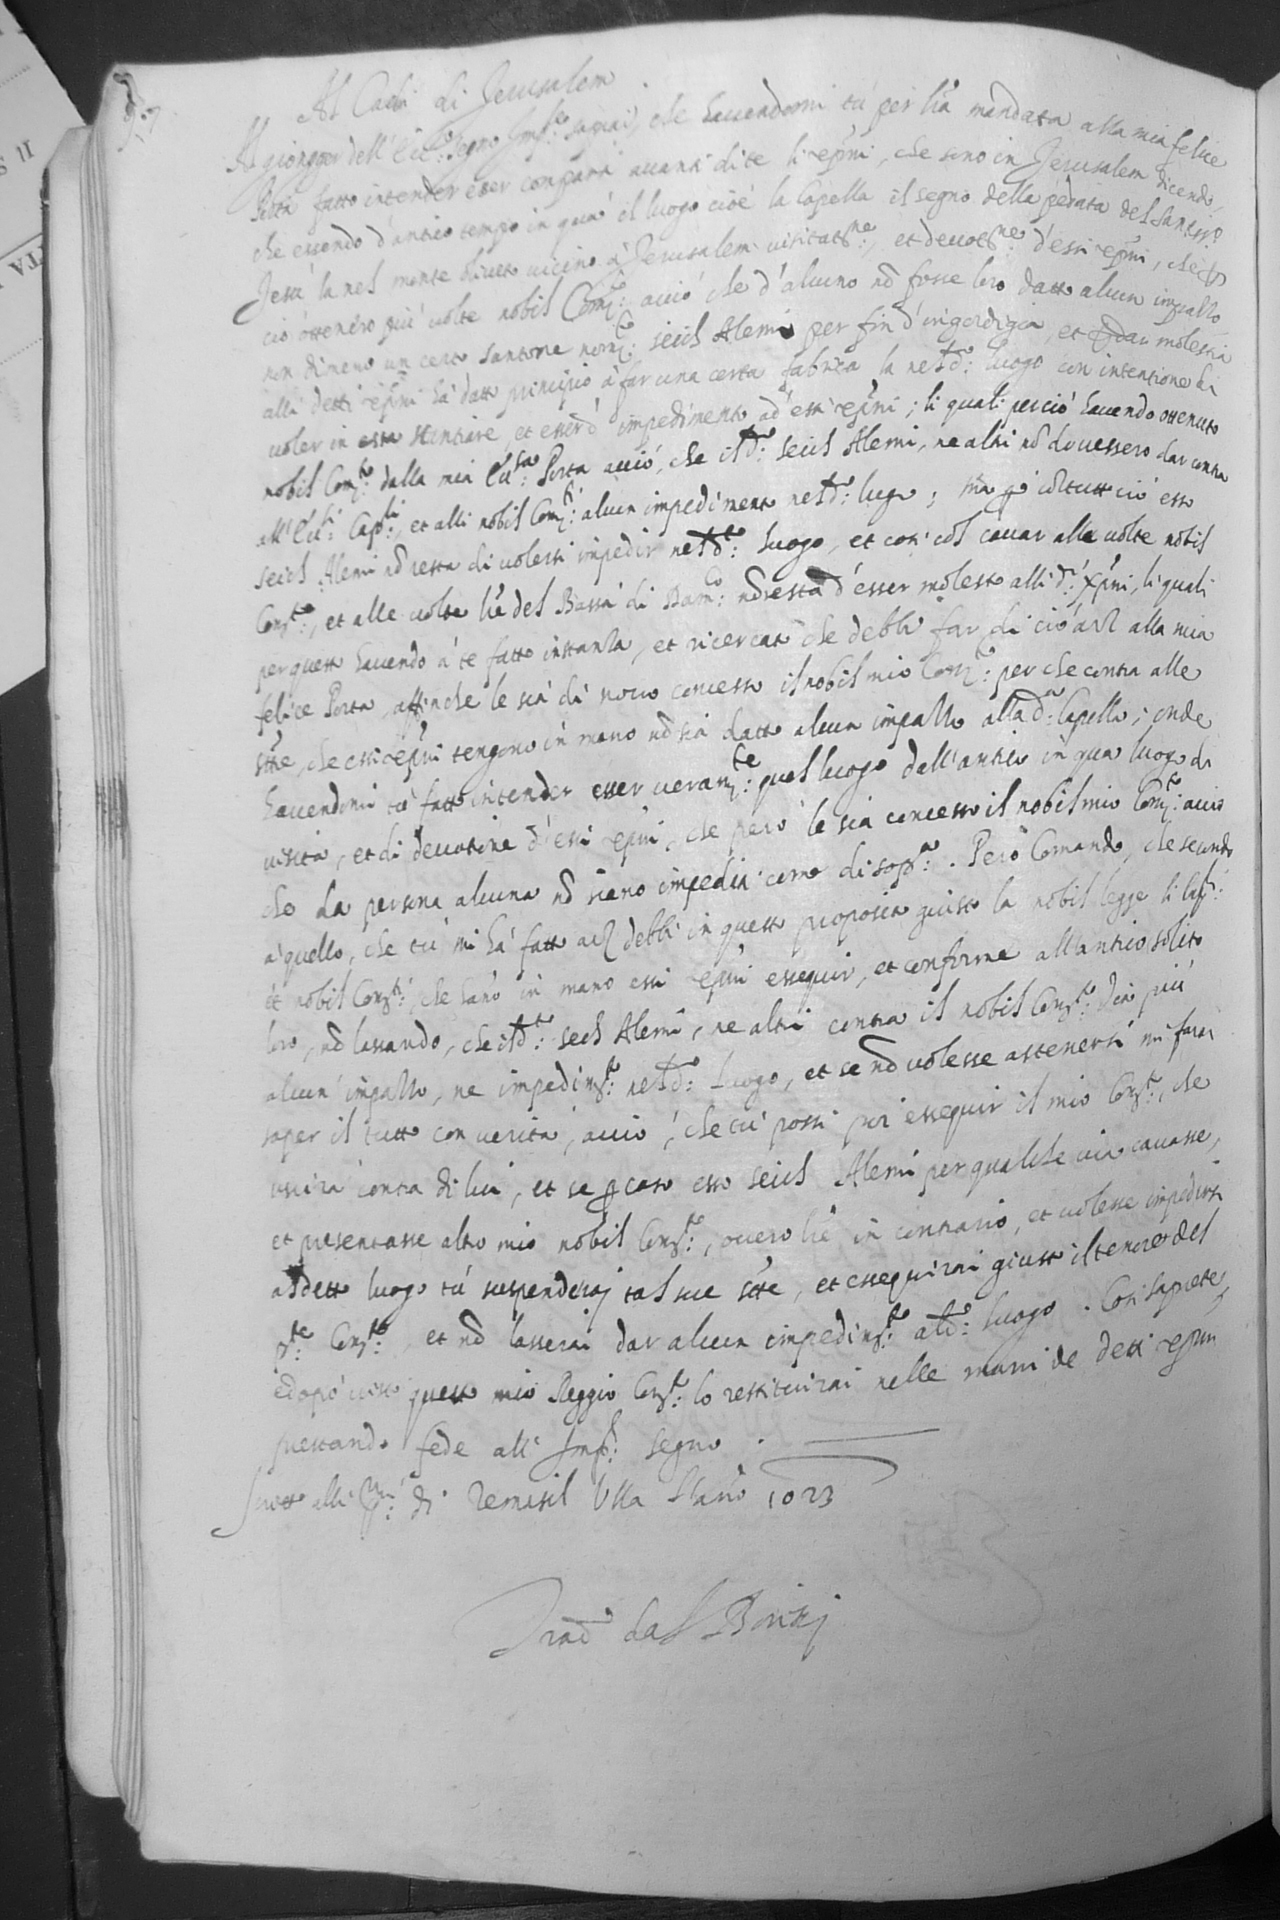 Al Cadi di Jerusalem
Al gionger dell' Ecc:so Segno Imp:le saprai, che havendomi tú per l'ra mandata alla mia felice
Porta fatto intender esser comparsi avanti di te li xp̃ni, che sono in Jerusalem dicendo,
che essendo d'antico tempo in quà il luogo cioè la Capella il segno della pedata del Santiss:o
Jesù la nel monte oliveto vicino à Jerusalem visitat:ne, et devot:ne d'essi xp̃ni, che p
ciò ottenero più volte nobil Com:ti acciò che d'alcuno nõ fosse loro datto alcun impazzo
non dimeno un certo santone nom:to seich Alemi per fin d'ingordigia, et p dar molestia
alli detti xp̃ni hà datto principio à far una certa fabrica la nel d:o luogo con intentione di
voler in essa stentiare, et esser d' impedimento ad essi xp̃ni; li quali perciò havendo ottenuto
nobil Com:to dalla mia Ecc:sa Porta acciò, che il d:o seich Alemi, ne altri nõ dovessero dar contra
all' Ecc:si Cap:li, et alli nobil Com:ti alcun impedimento nel d:o luogo; mà p che con tutto ciò esso
seich Alemi nõ resta di volersi impedir nel d:to luogo, et così col cavar alle volte nobil
Com:to, et alle volte l're del Bassà di Dam:co nõ resta d'esser molesto alli d:i xp̃ni, li quali
per questo havendo à te fatto instanza, et ricercato che debbi far di ciò arz alla mia
felice Porta, affinche le sia di novo concesso il nobil mio Com:to per che contra alle
s'tte, che essi xp̃ni tengono in mano nõ sia datto alcun impazzo alla d:a Capella; onde
havendomi tú fatto intender esser veram:te quel luogo dall'antico in qua luogo di
visita, et di devotione d'essi xp̃ni, che però le sia concesso il nobil mio Com:to acciò
che da persona alcuna nõ siano impediti come di sop:a. Però Comando, che secondo
à quello, che tú mi hà fatto arz debbi in questo proposito giusto la nobil legge li Cap:li
et nobil Com:ti, che hano in mano essi xp̃ni essequir, et conforme all'antico solito
loro, nõ lassando, che il d:to seich Alemi, ne altri contra il nobil Com:to dia più
alcun' impazzo, ne impedim:to nel d:o luogo, et se nõ volesse astenersi mi farai
saper il tutto con verità, acciò, che tú possi poi essequir il mio Com:to, che
uscirà contra di lui, et se p caso esso seich Alemi per qualche via cavasse,
et presentasse altro mio nobil Com:to, overo l're in contrario, et volesse impedirsi
al detto luogo tú suspenderaj tal sue s'tte, et essequirai giusto il tenore del
p:te Com:to, et nõ lasserai dar alcun impedim:to al d:o luogo. Così sapiate,
e dopò visto questo mio Reggio Com:to lo restituirai nelle mani de detti xp̃ni
prestando fede all' Imp:l segno.
Scritto alli p:mi di Zemasil Ulla l'anno 1023
Trad:o dal Borissj